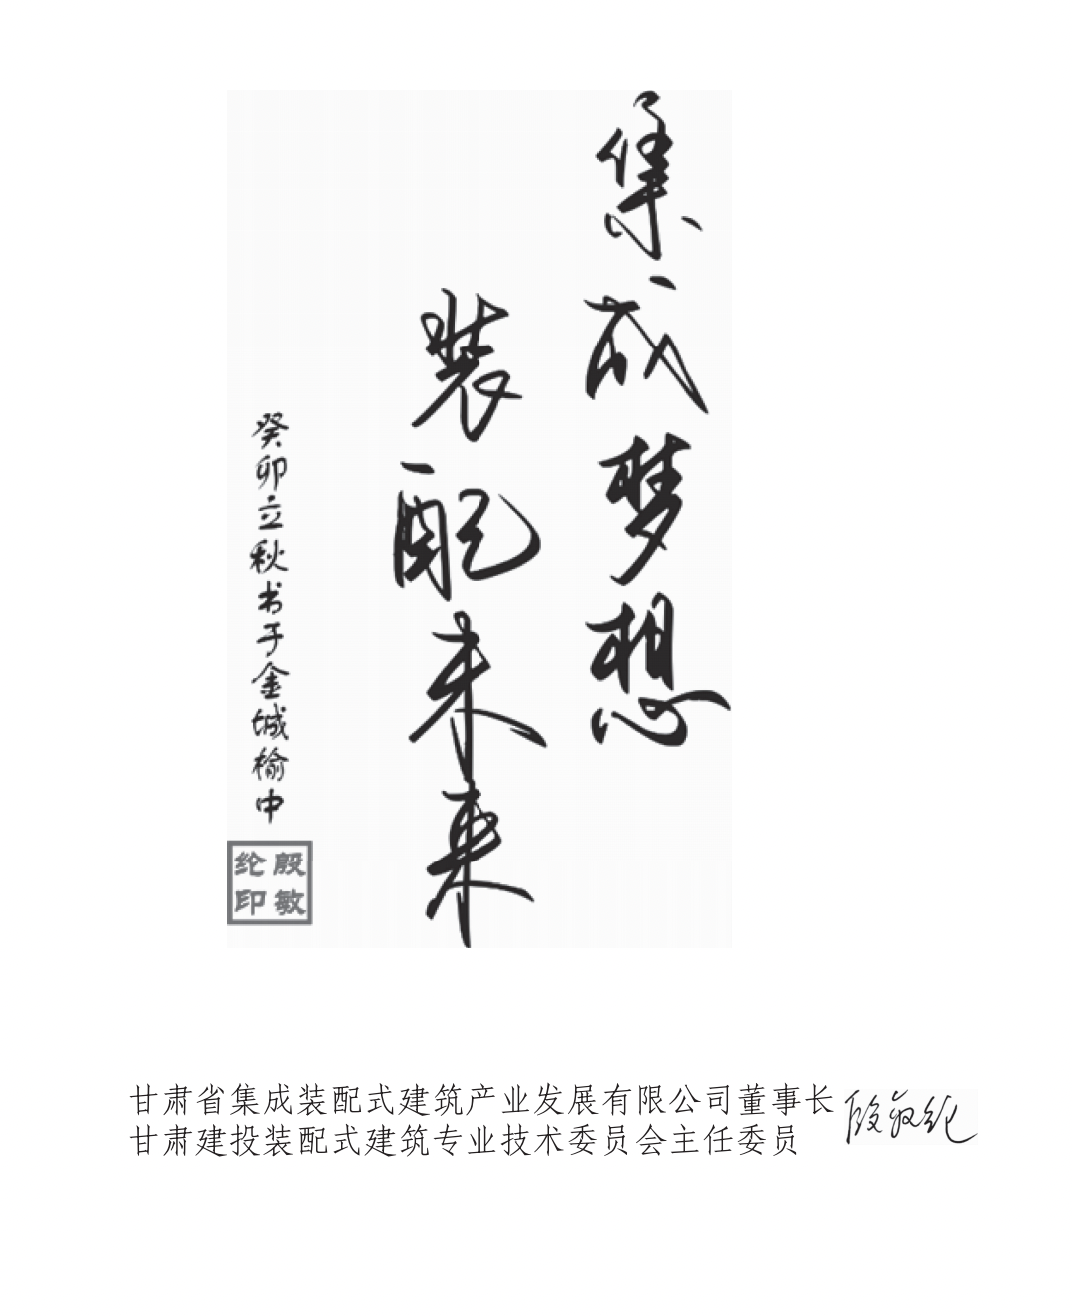 集成梦想
装配未来
癸卯立秋书于金城榆中
殷敏
纶印
甘肃省集成装配式建筑产业发展有限公司董事长 殷敏纶
甘肃建投装配式建筑专业技术委员会主任委员